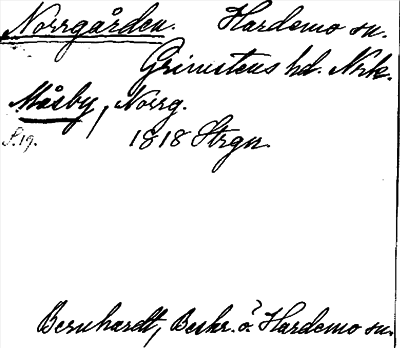 Norrgården. Hardemo sn.
Grimstens hd. Nrk.
Måsby, Norrg.
S. 19. 1818 Strgn.
Bernhardt, Beskr. ö. Hardemo sn.